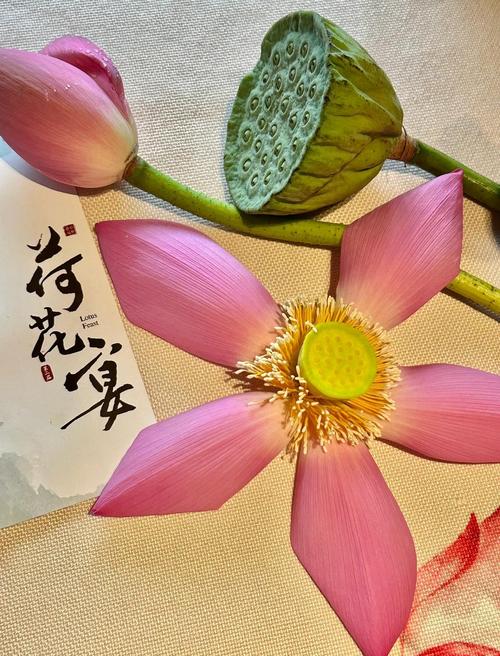 荷花宴
Lotus
Feast